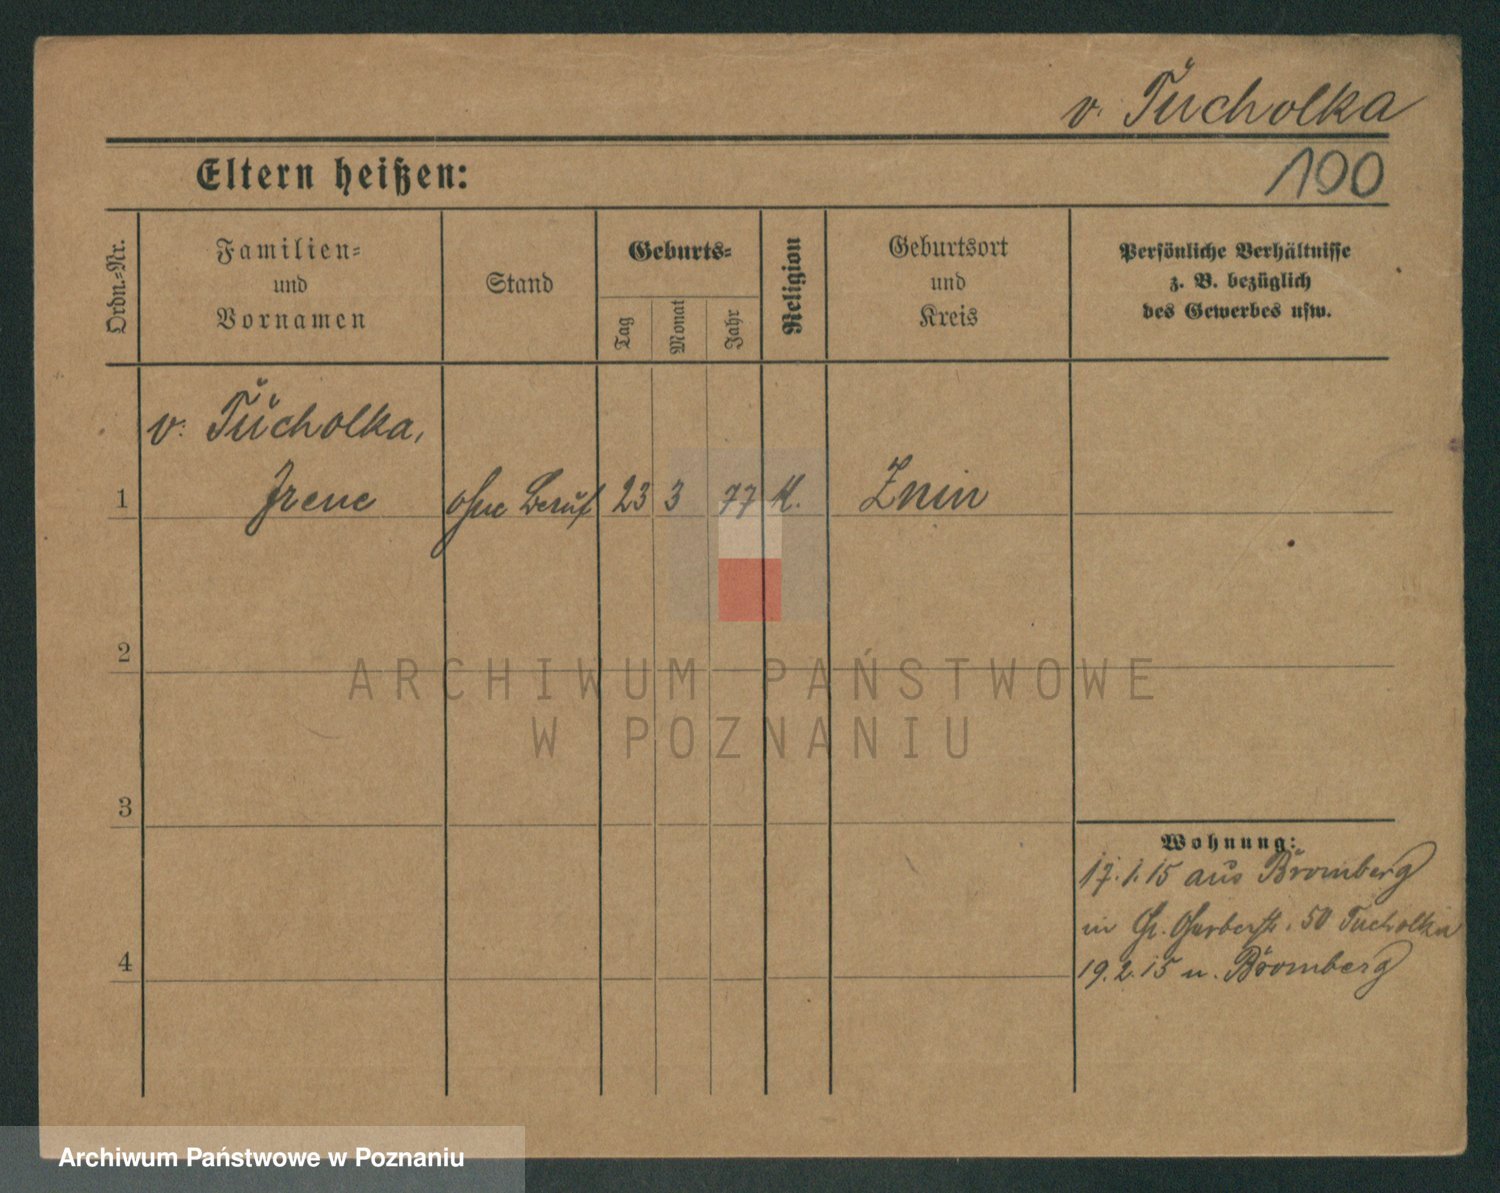 v. Tucholka
Eltern heißen:
100
Ordn.-Nr.
Familien-
und
Vornamen
Stand
Geburts-
Tag
Monat
Jahr
Religion
Geburtsort
und
Kreis
Persönliche Verhältnisse
z. B. bezüglich
des Gewerbes usw.
v. Tucholka,
1 Irene ohne Beruf 23 3 77 K. Znin
2
3
4
Wohnung:
17.1.15 aus Bromberg
in Gr. Gerberstr. 50 Tucholka
19.2.15 n. Bromberg
ARCHIWUM PAŃSTWOWE
W POZNANIU
Archiwum Państwowe w Poznaniu